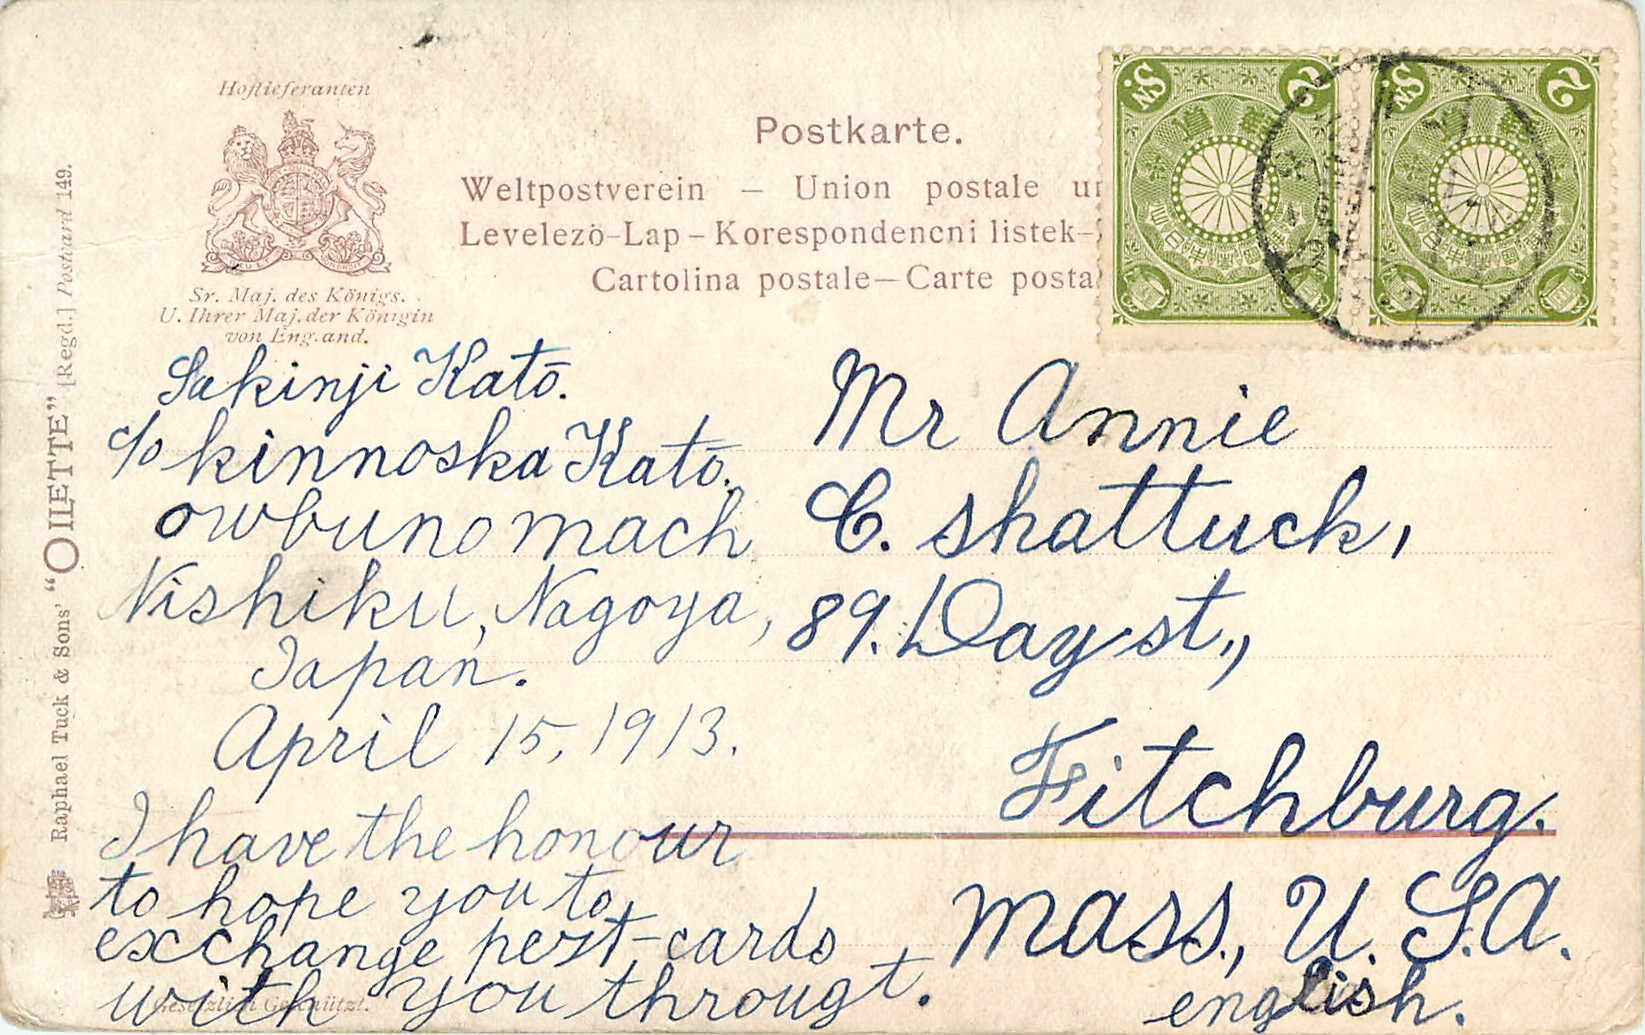 Hoflieferanten
Sr. Maj. des Königs.
U. Ihrer Maj. der Königin
von Eng.and.
Postkarte.
Weltpostverein – Union postale un
Levelezö-Lap – Korespondencni listek-
Cartolina postale – Carte posta
2 Sn. 2 Sn.
Raphael Tuck & Sons' "OILETTE" [Regd.] Postcard 149.
Sakinji Katō.
c/o kinnoska Katō.
owbuno mach
Nishiku, Nagoya,
Japan.
April 15, 1913.
I have the honour
to hope you to
exchange pest-cards
with you througt.
Gesetzlich Geschützt.
Mr Annie
C. shattuck,
89. Day st.,
Fitchburg.
mass., U.S.A.
english.